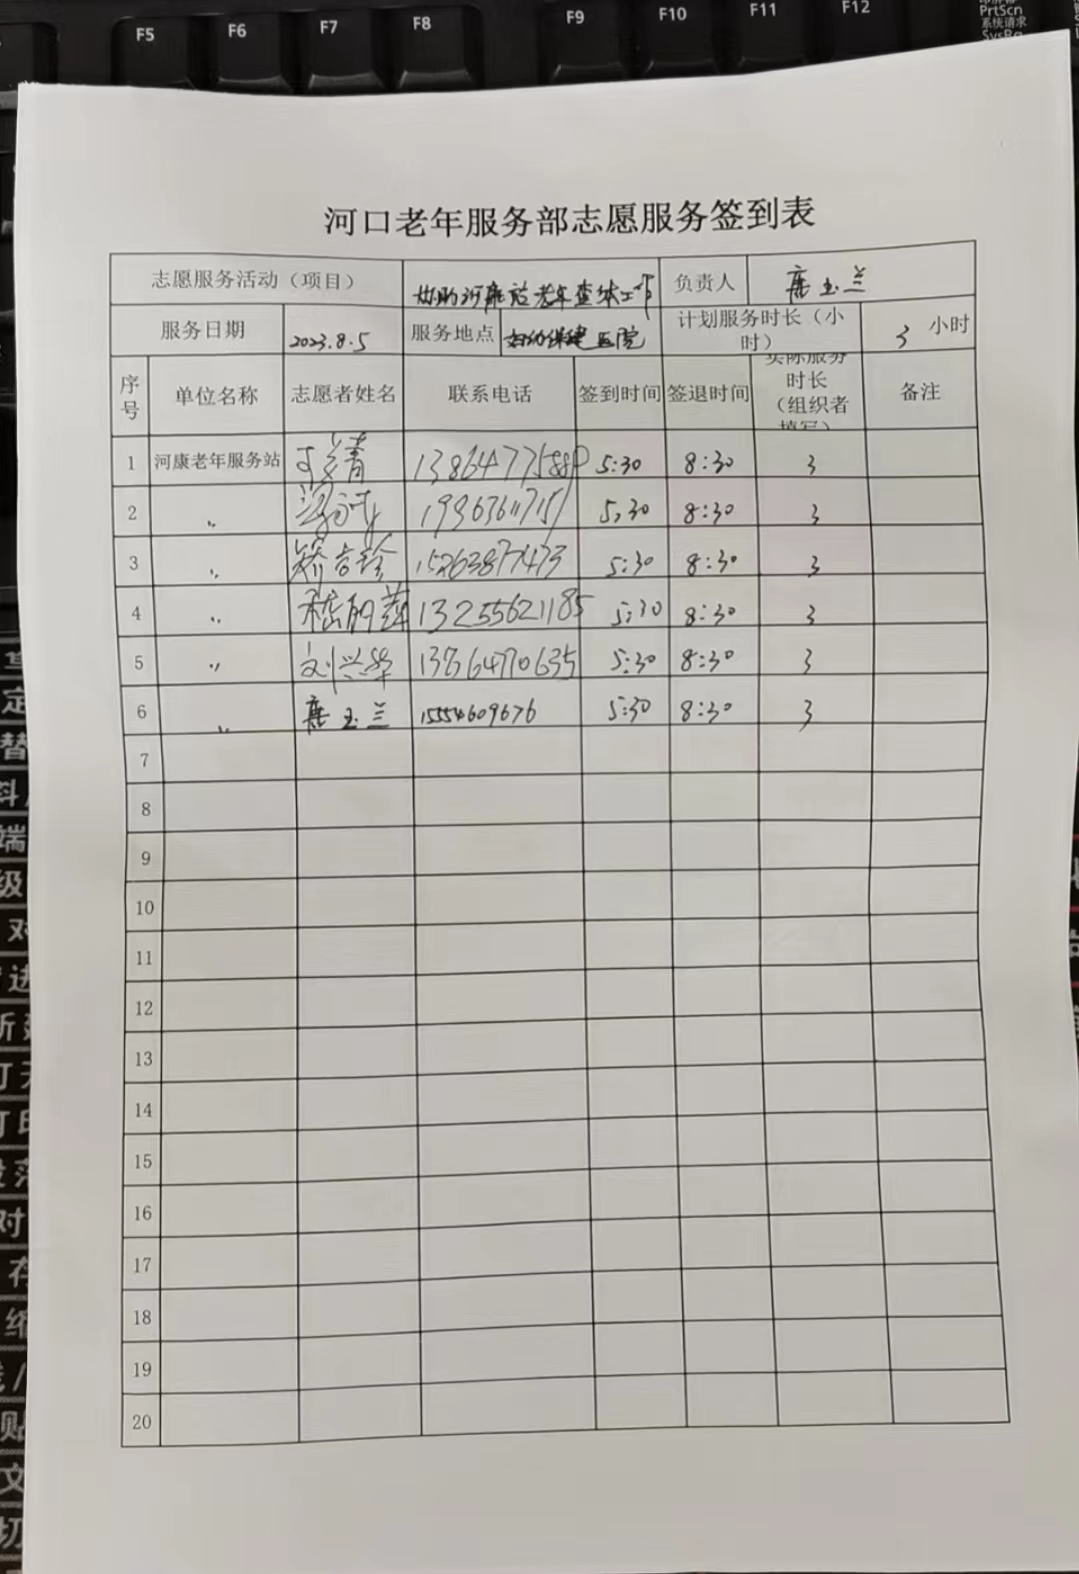 F5 F6 F7 F8 F9 F10 F11 F12 PrtScn
系统请求
SysRq
河口老年服务部志愿服务签到表
志愿服务活动（项目） 协助河康站老年查体工作 负责人 唐玉兰
服务日期 2023.8.5 服务地点 妇幼保健医院 计划服务时长（小时） 3 小时
序号 单位名称 志愿者姓名 联系电话 签到时间 签退时间 实际服务时长（组织者填写） 备注
1 河康老年服务站 5:30 8:30 3
2 〃 5:30 8:30 3
3 〃 15263877473 5:30 8:30 3
4 〃 13255621185 5:30 8:30 3
5 〃 刘兴华 13864770635 5:30 8:30 3
6 〃 唐玉兰 15554609676 5:30 8:30 3
7
8
9
10
11
12
13
14
15
16
17
18
19
20